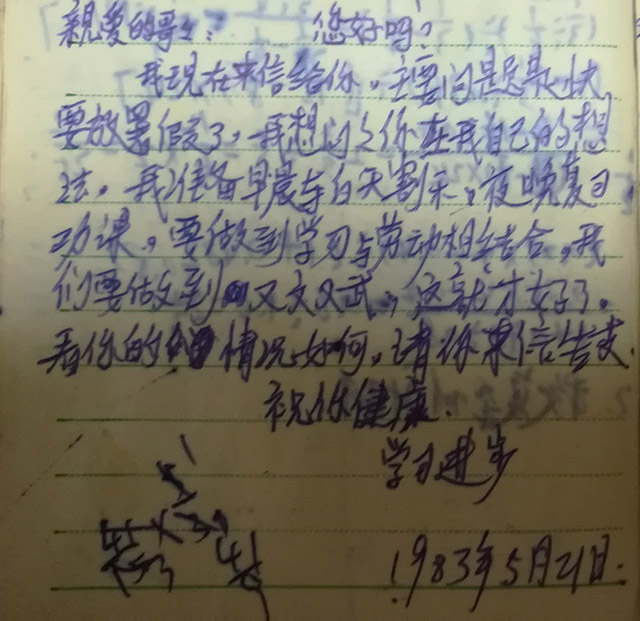 親爱的哥々: 您好吗?
我现在来信给你,主要问是快
要放暑假了,我想问々你在我自己的想
法。我准备早晨与白天割禾,夜晚复习
功课,要做到学习与劳动相结合,我
们要做到又文又武,这就才好了。
看你的情况如何,请你来信告支.
祝你健康.
学习进步
1983年5月21日.